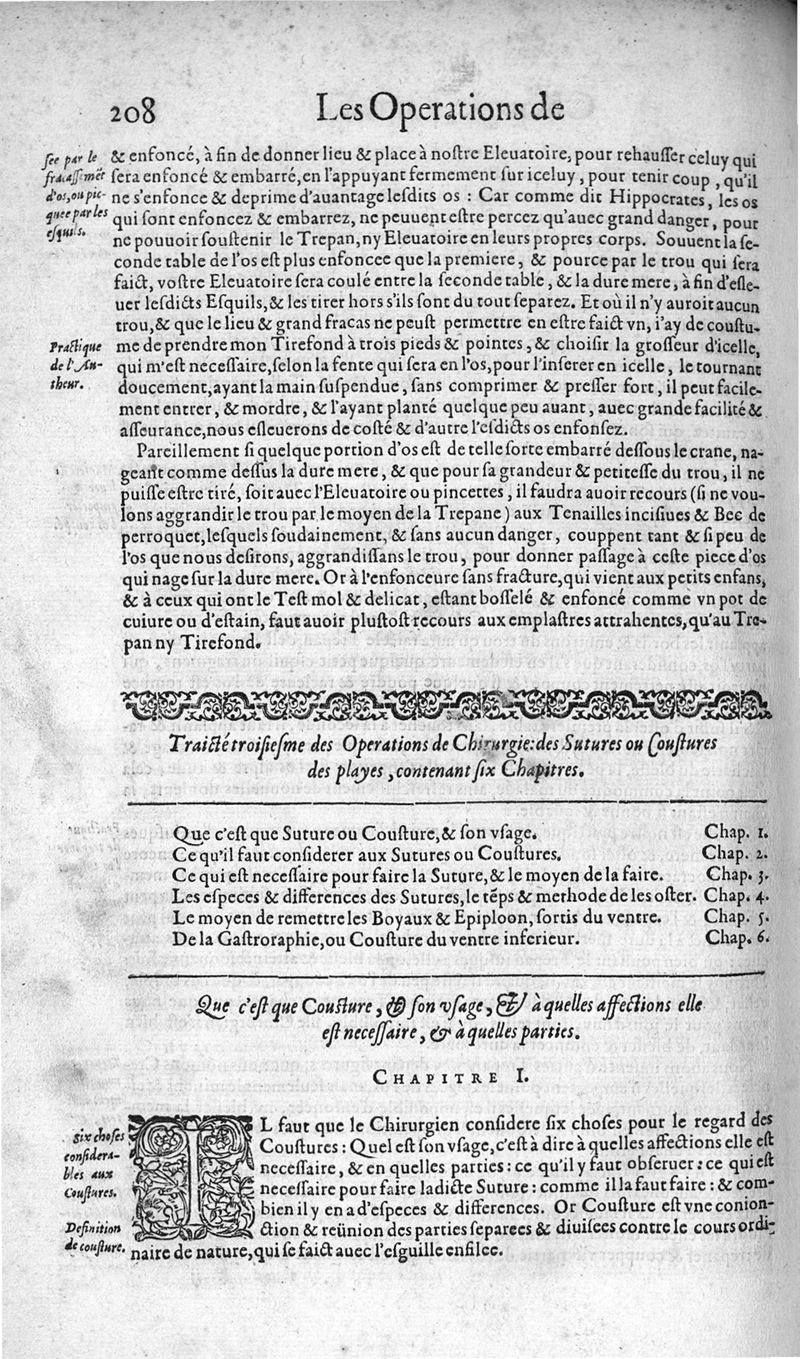 208
Les Operations de
ſee par le
fracaſſemẽt
d'os, ou pic-
quee par les
eſquils.
& enfoncé, à fin de donner lieu & place à noſtre Eleuatoire, pour rehauſſer celuy qui
ſera enfoncé & embarré, en l'appuyant fermement ſur iceluy, pour tenir coup, qu'il
ne s'enfonce & deprime d'auantage leſdits os : Car comme dit Hippocrates, les os
qui ſont enfoncez & embarrez, ne peuuent eſtre percez qu'auec grand danger, pour
ne pouuoir ſouſtenir le Trepan, ny Eleuatoire en leurs propres corps. Souuent la ſe-
conde table de l'os eſt plus enfoncee que la premiere, & pource par le trou qui ſera
faict, voſtre Eleuatoire ſera coulé entre la ſeconde table, & la dure mere, à fin d'eſle-
uer leſdicts Eſquils, & les tirer hors s'ils ſont du tout ſeparez. Et où il n'y auroit aucun
trou, & que le lieu & grand fracas ne peuſt permettre en eſtre faict vn, i'ay de couſtu-
Practique
de l'Au-
theur.
me de prendre mon Tirefond à trois pieds & pointes, & choiſir la groſſeur d'icelle,
qui m'eſt neceſſaire, ſelon la fente qui ſera en l'os, pour l'inſerer en icelle, le tournant
doucement, ayant la main ſuſpendue, ſans comprimer & preſſer fort, il peut facile-
ment entrer, & mordre, & l'ayant planté quelque peu auant, auec grande facilité &
aſſeurance, nous eſleuerons de coſté & d'autre leſdicts os enfonſez.
Pareillement ſi quelque portion d'os eſt de telle ſorte embarré deſſous le crane, na-
geant comme deſſus la dure mere, & que pour ſa grandeur & petiteſſe du trou, il ne
puiſſe eſtre tiré, ſoit auec l'Eleuatoire ou pincettes, il faudra auoir recours (ſi ne vou-
lons aggrandir le trou par le moyen de la Trepane) aux Tenailles inciſiues & Bec de
perroquet, leſquels ſoudainement, & ſans aucun danger, couppent tant & ſi peu de
l'os que nous deſirons, aggrandiſſans le trou, pour donner paſſage à ceſte piece d'os
qui nage ſur la dure mere. Or à l'enfonceure ſans fracture, qui vient aux petits enfans,
& à ceux qui ont le Teſt mol & delicat, eſtant boſſelé & enfoncé comme vn pot de
cuiure ou d'eſtain, faut auoir pluſtoſt recours aux emplaſtres attrahentes, qu'au Tre-
pan ny Tirefond.
Traicté troiſieſme des Operations de Chirurgie: des Sutures ou Couſtures
des playes, contenant ſix Chapitres.
Que c'eſt que Suture ou Couſture, & ſon vſage. Chap. 1.
Ce qu'il faut conſiderer aux Sutures ou Couſtures. Chap. 2.
Ce qui eſt neceſſaire pour faire la Suture, & le moyen de la faire. Chap. 3.
Les eſpeces & differences des Sutures, le tẽps & methode de les oſter. Chap. 4.
Le moyen de remettre les Boyaux & Epiploon, ſortis du ventre. Chap. 5.
De la Gaſtroraphie, ou Couſture du ventre inferieur. Chap. 6.
Que c'eſt que Couſture, & ſon vſage, & à quelles affections elle
eſt neceſſaire, & à quelles parties.
CHAPITRE I.
Six choſes
conſidera-
bles aux
Couſtures.
Definition
de couſture.
IL faut que le Chirurgien conſidere ſix choſes pour le regard des
Couſtures : Quel eſt ſon vſage, c'eſt à dire à quelles affections elle eſt
neceſſaire, & en quelles parties : ce qu'il y faut obſeruer : ce qui eſt
neceſſaire pour faire ladicte Suture : comme il la faut faire : & com-
bien il y en a d'eſpeces & differences. Or Couſture eſt vne conion-
ction & reünion des parties ſeparees & diuiſees contre le cours ordi-
naire de nature, qui ſe faict auec l'eſguille enfilee.